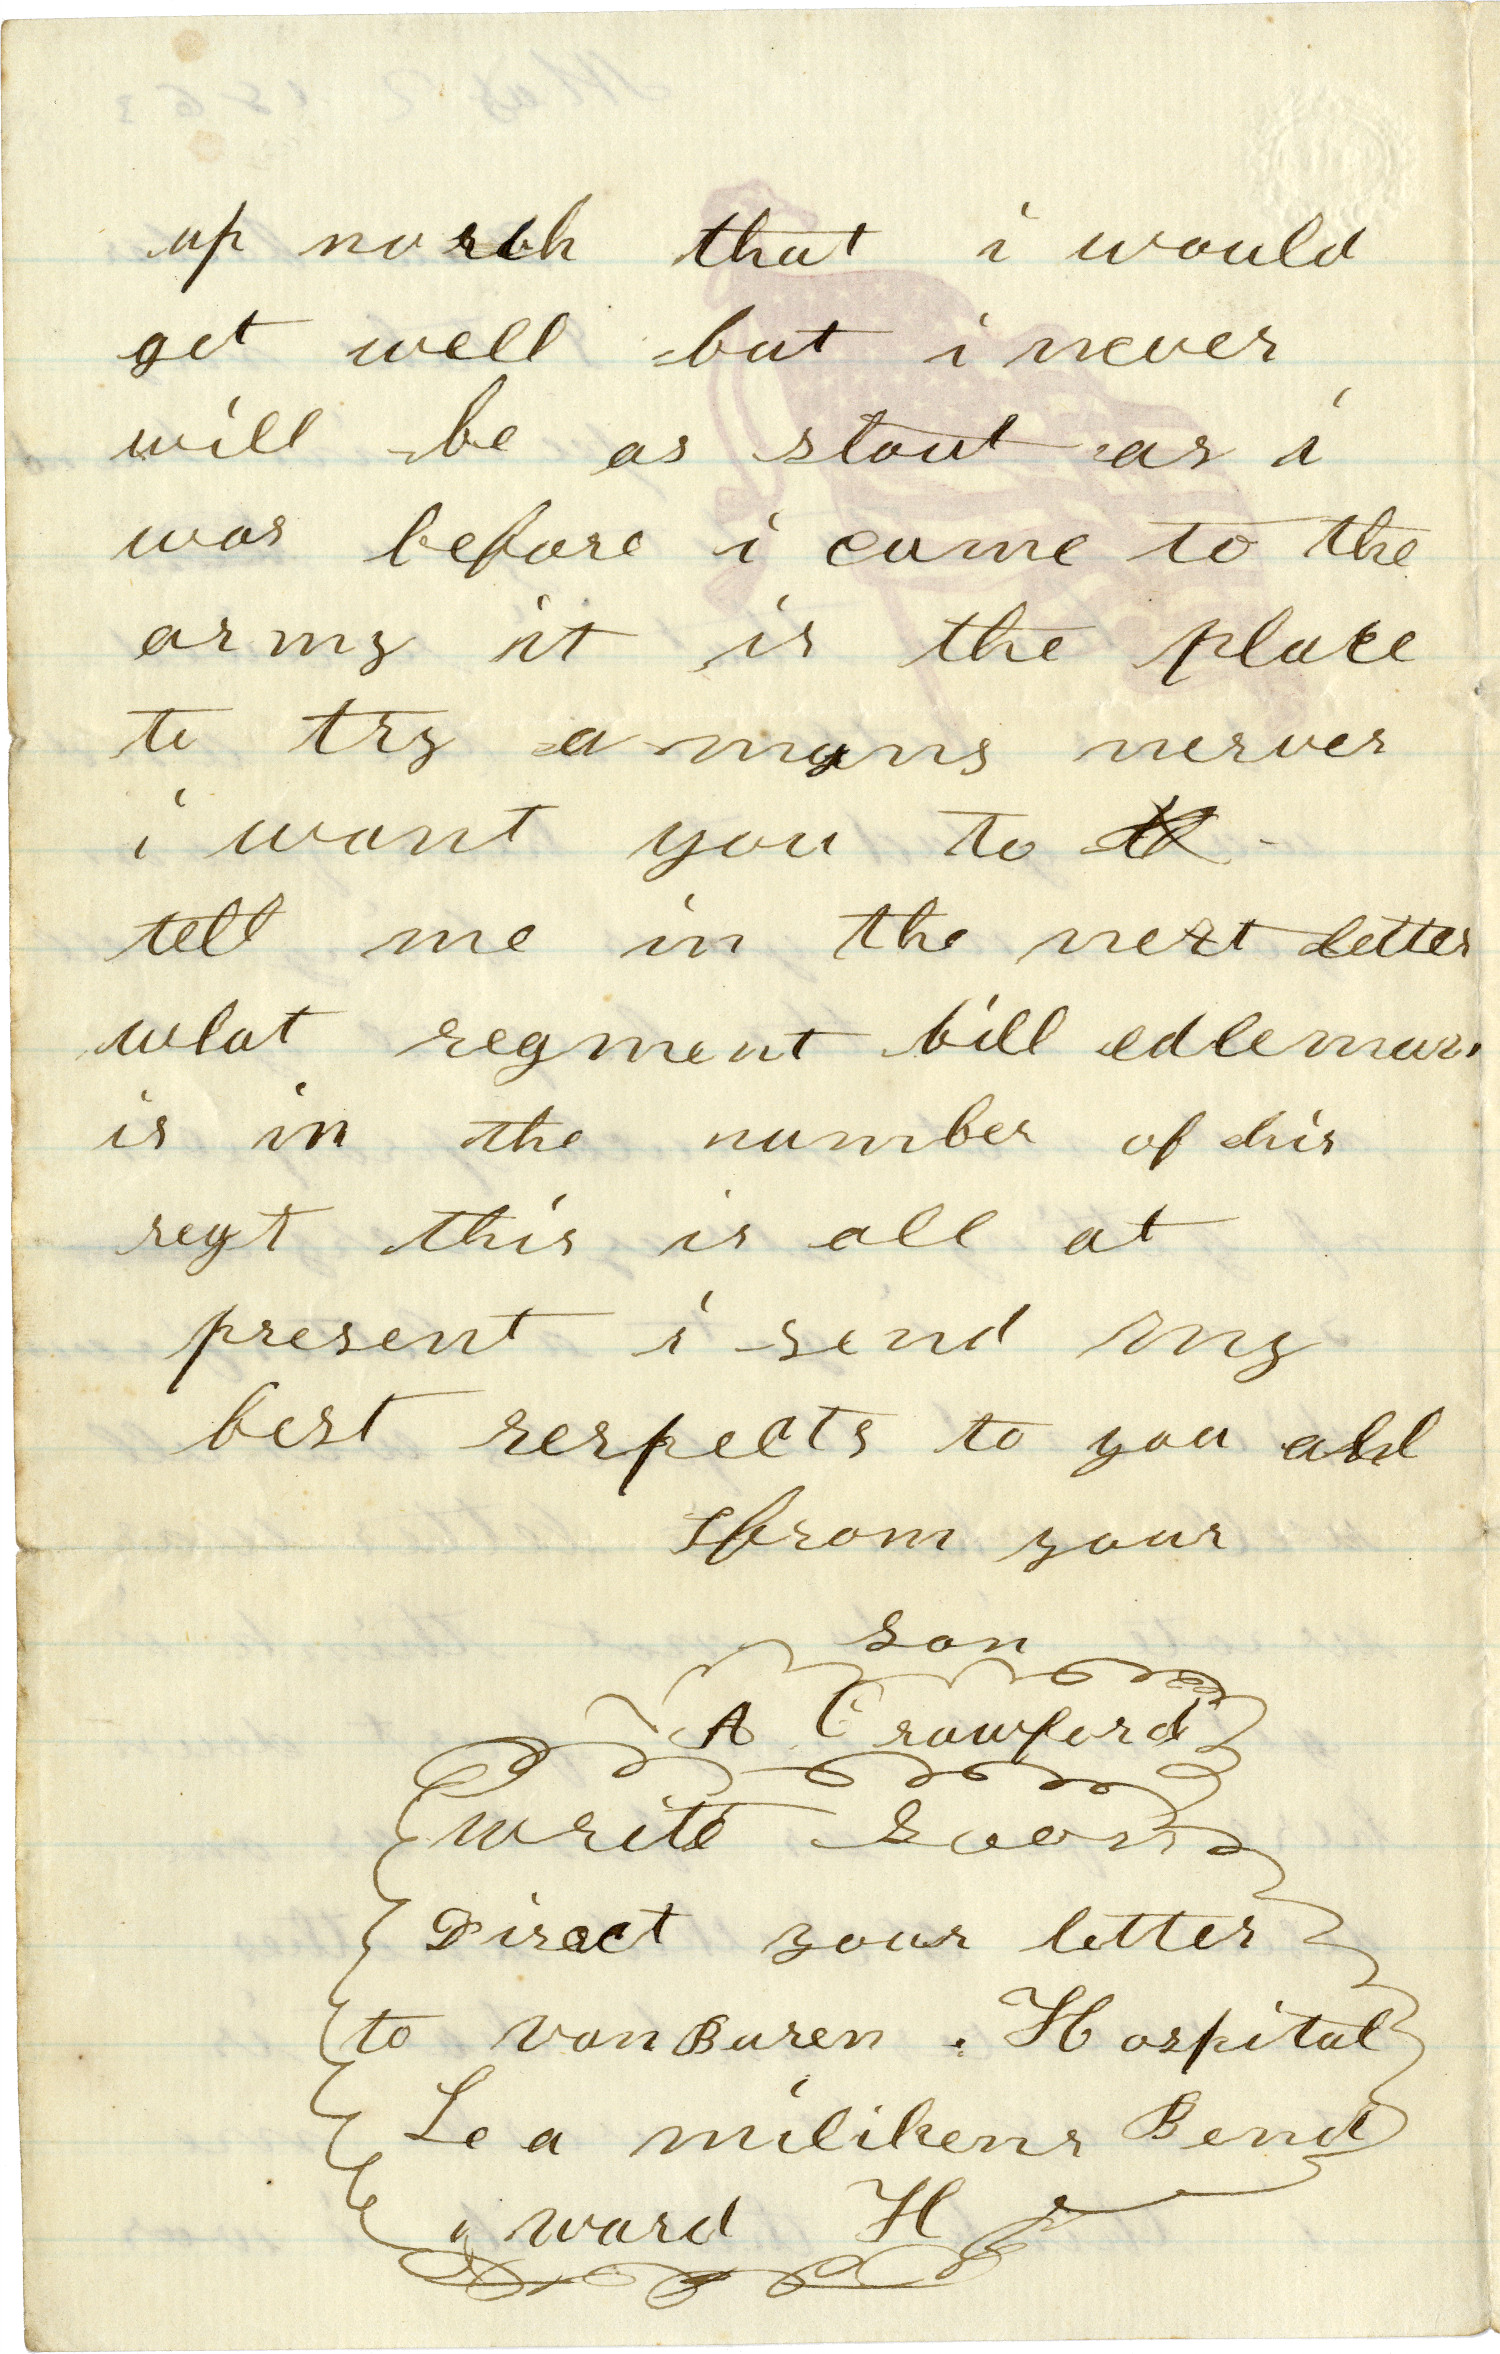 up north that i would
get well but i never
will be as stout as i
was before i came to the
army it is the place
to try a mans nerves
i want you to
tell me in the next letter
what regment bill edleman
is in the number of his
regt this is all at
present i send my
best respects to you all
from your
son
A Crawford
write soon
Direct your letter
to vanBuren . Hospital
Le a milikens Bend
ward H